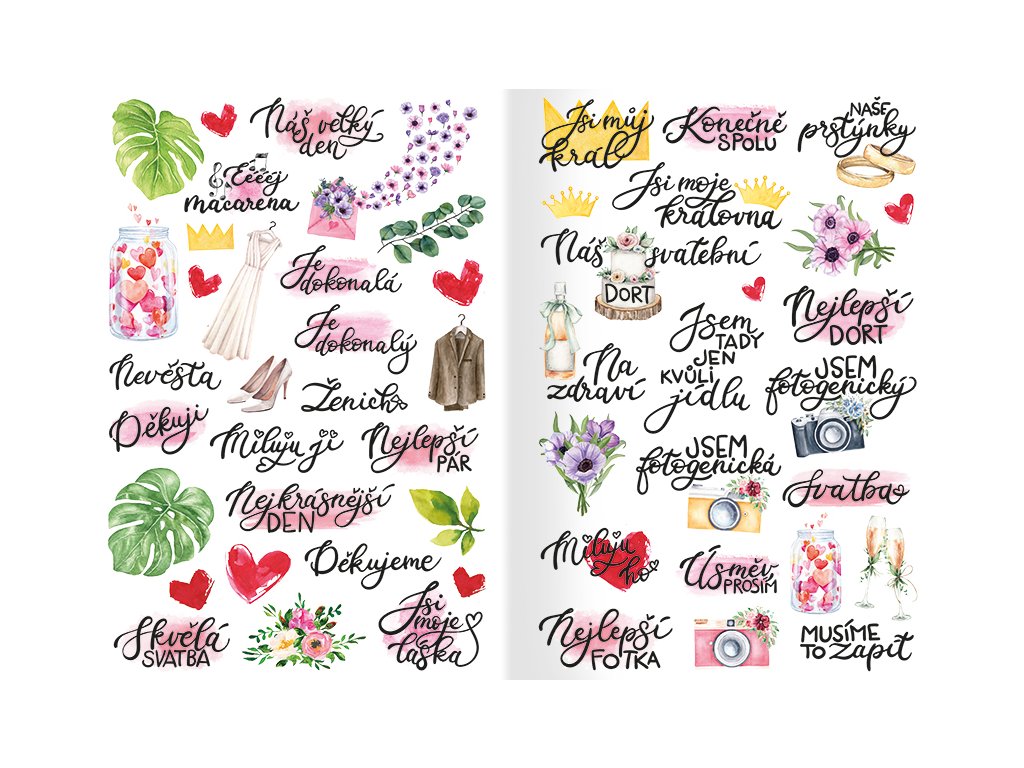 Náš velký
den
Ëëëj
macarena
Je
dokonalá
Je
dokonalý
Nevěsta
Ženich
Děkuji
Miluju ji
Nejlepší
PÁR
Nejkrásnější
DEN
Děkujeme
Skvělá
SVATBA
Jsi
moje
láska
Jsi můj
král
Konečně
SPOLU
NAŠE
prstýnky
Jsi moje
královna
Náš svatební
DORT
Jsem
TADY
JEN
KVŮLI
jídlu
Nejlepší
DORT
Na
zdraví
JSEM
fotogenický
JSEM
fotogenická
Svatba
Miluju
ho
Úsměv
PROSÍM
Nejlepší
FOTKA
MUSÍME
TO zapít